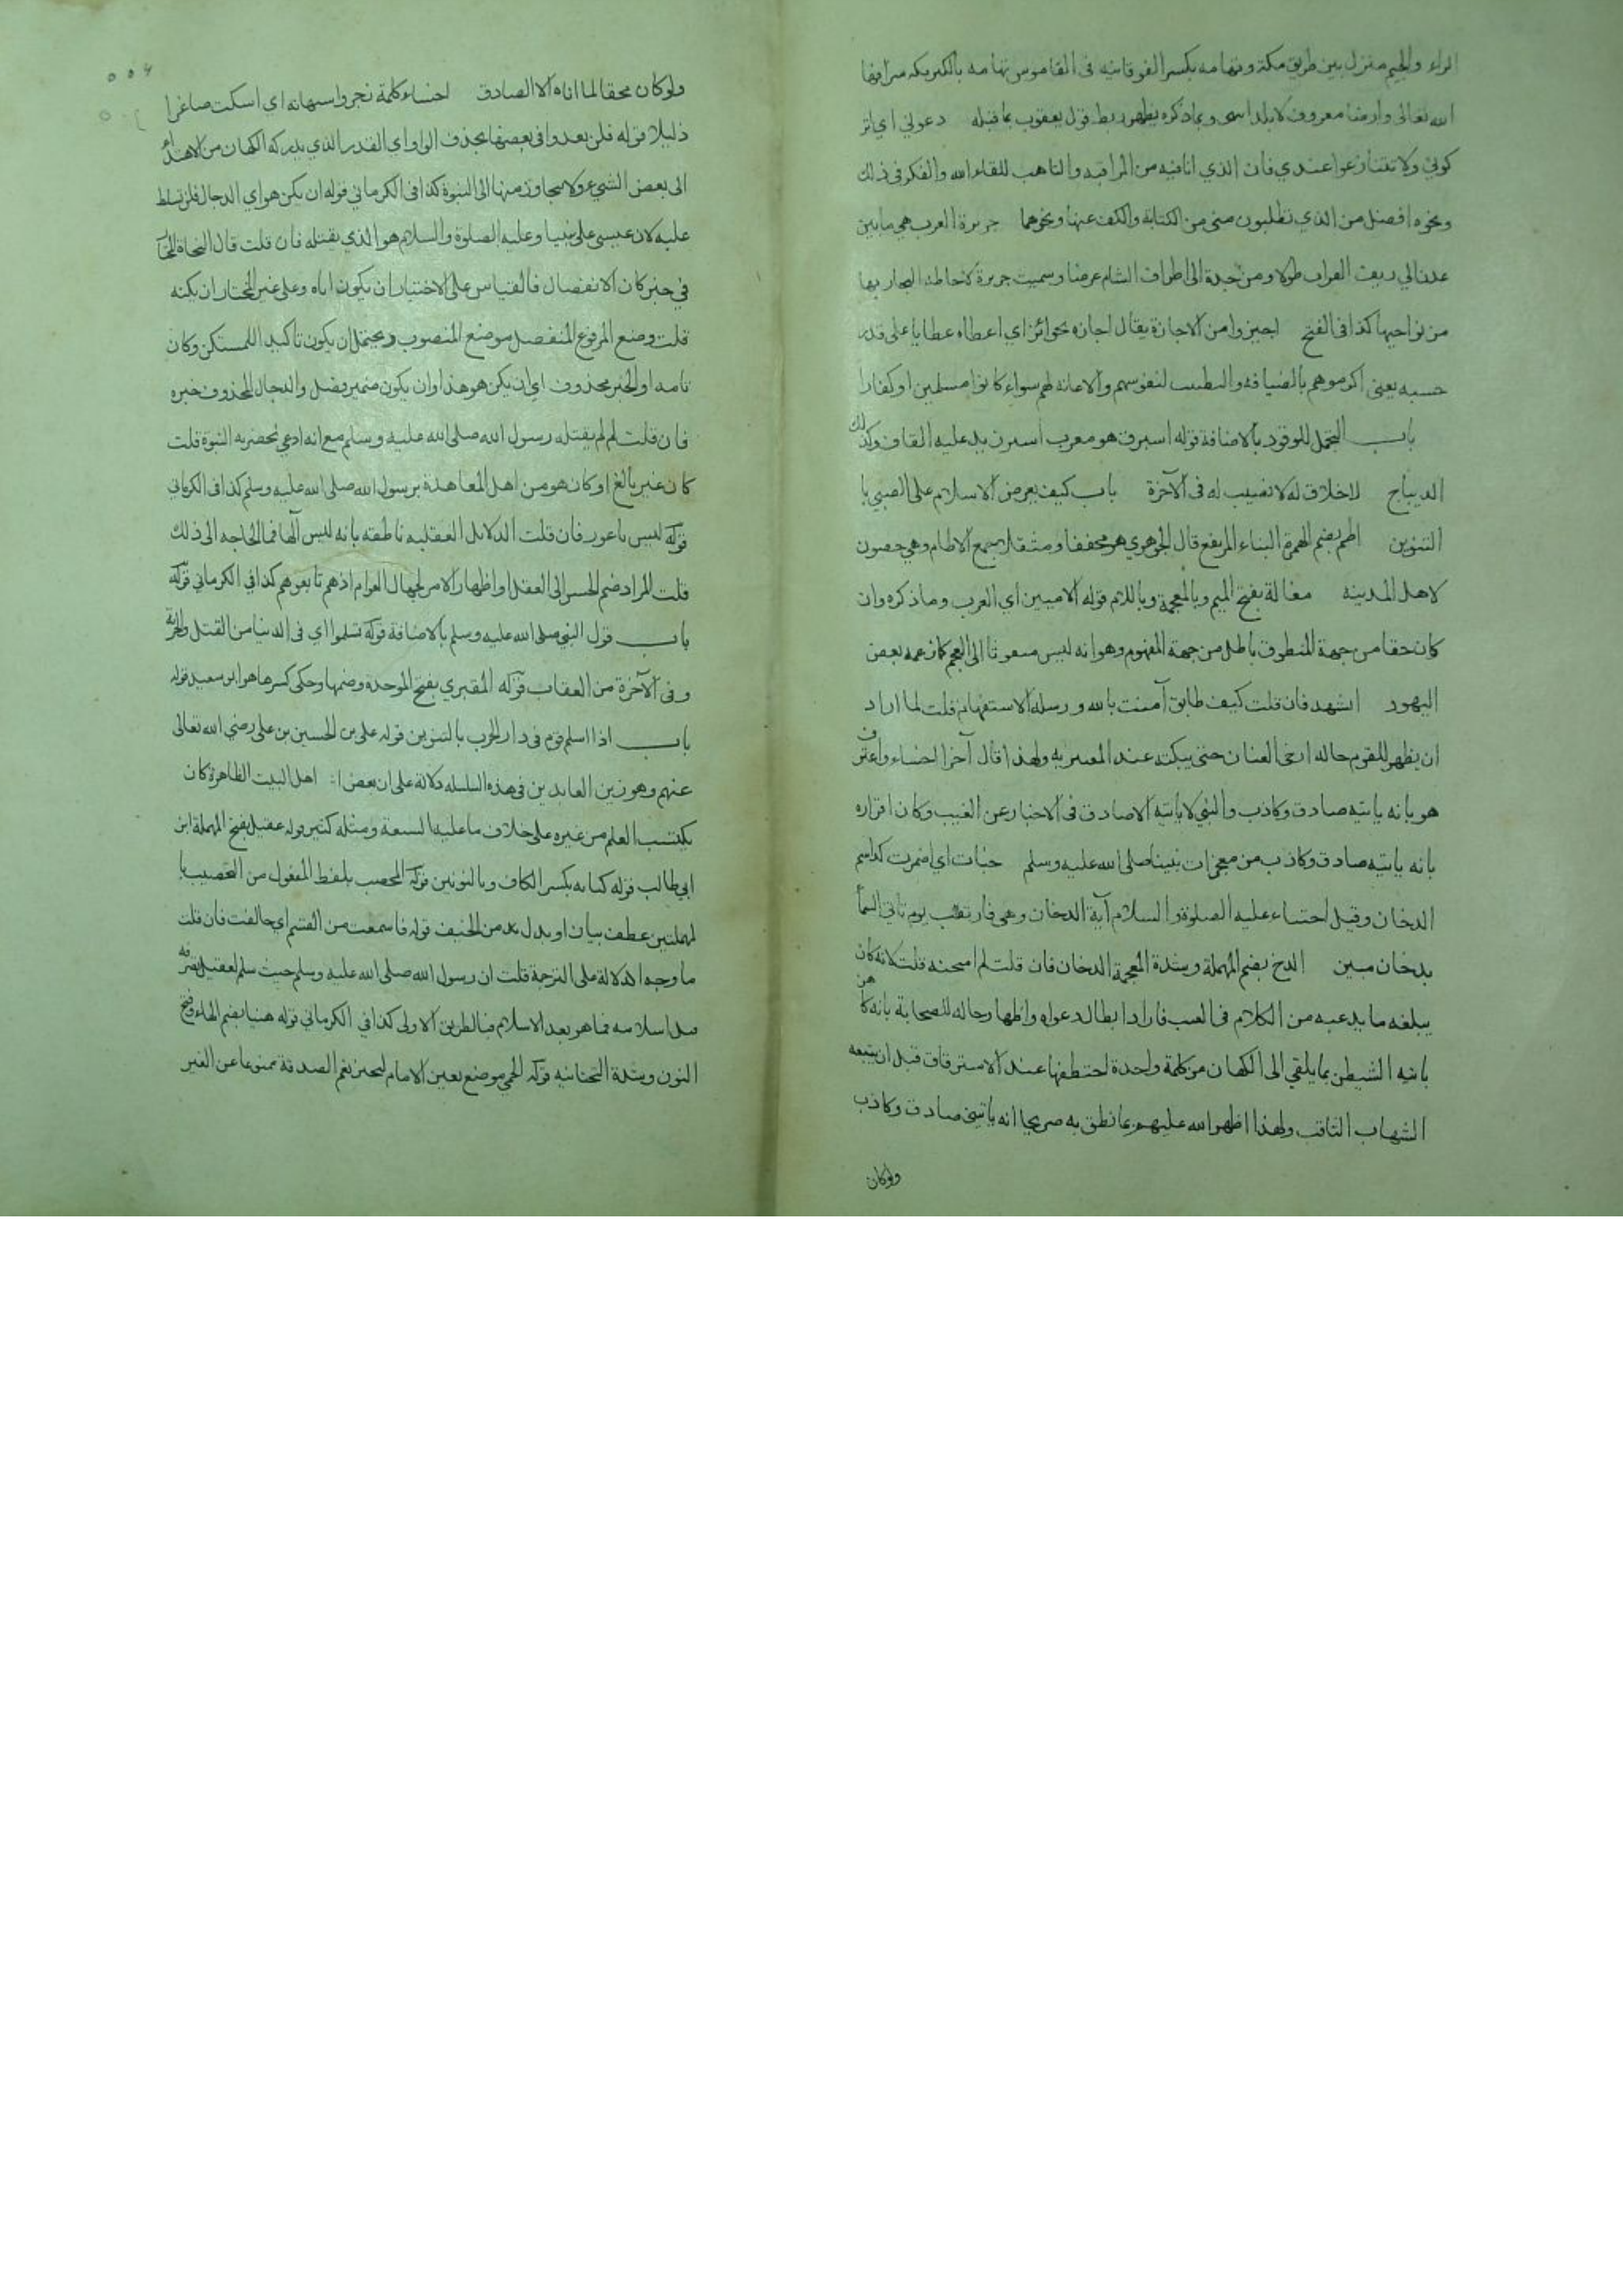 الراء والجيم منزل بين طريق مكة وتهامه بكسر الفوقانيه فى القاموس تهامه بالكسر مكه شرافها
الله تعالى وارضا معروف لا بلد اسمى وبما ذكره يظهر ربط قول يعقوب بما قبله دعونى اي اتر
كونى ولا تتنازعوا عندي فان الذي انا فيه من المراقبه والتاهب للقاء الله والفكر فى ذلك
ونحوه افضل من الذي تطلبون منى من الكتابة والكف عنها ونحوهما جزيرة العرب هي ما بين
عدن الى ريف العراف طولا ومن جدة الى اطراف الشام عرضا وسميت جزيرة لاحاطه البحار بها
من نواحيها كذا فى الفتح اجيزوا من الاجازة يقال اجازه بجوائز اي اعطاه عطايا على قدر
حسبه يعنى اكرموهم بالضيافه والتطييب لنفوسهم والاعانه لهم سواء كانوا مسلمين او كفارا
باب التجمل للوفود بالاضافة قوله استبرق هو معرب استبرن بدعليه القاف وكذلك
الديباج لاخلاق له لا نصيب له فى الآخرة باب كيف يعرض الاسلام على الصبي با
التنوين اطم بضم الهمزة البناء المرتفع قال الجوهري هو مخففا ومثقلا يجمع الاطام وهى حصون
لاهل المدينه مغالة بفتح الميم وبالمعجمة وباللام قوله الاميين أي العرب وما ذكره وان
كان حقا من جهة المنطوق باطل من جهة المفهوم وهو انه ليس مبعوثا الى العجم كما زعمه بعض
اليهود اتشهد فان قلت كيف طابق آمنت بالله ورسله الاستفهام قلت لما اراد
ان يظهر للقوم حاله ارخى العنان حتى يبكته عند المغتر به ولهذا قال آخرا اخساء واعترف
هو بانه ياتيه صادق وكاذب والنبي لا ياتيه الا صادق فى الاخبار عن الغيب وكان اقراره
بانه ياتيه صادق وكاذب من معجزات نبينا صلى الله عليه وسلم خبات اي اضمرت لك اسم
الدخان وقيل اختباء عليه الصلوة والسلام آية الدخان وهى فارتقب يوم تاتى السما
بدخان مبين الدخ بضم المهملة وشدة المعجمة الدخان فان قلت لم امتحنه قلت لانه كان
يبلغه ما يدعيه من الكلام فى الغيب فاراد ابطال دعواه واظهار حاله للصحابة بانه كاهن
ياتيه الشيطن بما يلقي الى الكهان من كلمة واحدة اختطفها عند الاستراق قبل ان يتبعه
الشهاب الثاقب ولهذا اظهر الله عليهم بما نطق به صريحا انه ياتينى صادق وكاذب
ولوكان
ولوكان محقا لما اتاه الا الصادق اخساء كلمة زجر واستهانه اي اسكت صاغرا
ذليلا قوله فلن تعدوا فى بعضها بحذف الواو اي القدر الذي يدركه الكهان من الاهتداء
الى بعض الشيئ ولا يتجاوز منها الى النبوة كذا فى الكرماني قوله ان يكن هو اي الدجال فلن تسلط
عليه لان عيسى على نبينا وعليه الصلوة والسلام هو الذي يقتله فان قلت قال النحاة المختار
في خبر كان الانفصال فالقياس على الاختيار ان يكون اياه وعلى غير المختار ان يكنه
قلت وضع المرفوع المنفصل موضع المنصوب ويحتمل ان يكون تاكيدا للمستكن وكان
تامه او الخبر محذوف اي ان يكن هو هذا وان يكون ضمير فصل والدجال المحذوف خبره
فان قلت لم لم يقتله رسول الله صلى الله عليه وسلم مع انه ادعي بحضرته النبوة قلت
كان غير بالغ او كان هو من اهل المعاهدة برسول الله صلى الله عليه وسلم كذا فى الكرماني
قوله ليس باعور فان قلت الدلايل العقليه ناطقه بانه ليس آلها فما الحاجه الى ذلك
قلت المراد ضم الحس الى العقل او اظهار الامر لجهال العوام اذ هم تابعوهم كذا في الكرماني قوله
باب قول النبى صلى الله عليه وسلم بالاضافة قوله تسلموا اي فى الدنيا من القتل والجزية
وفى الآخرة من العقاب قوله المقبري بفتح الموحدة وضمها وحكى كسرها هو ابو سعيد قوله
باب اذا اسلم قوم فى دار الحرب بالتنوين قوله على بن الحسين بن على رضي الله تعالى
عنهم وهو زين العابدين فى هذه السلسله دلالة على ان بعض اهل البيت الطاهرة كان
يكتسب العلم من غيره على خلاف ما عليه الشيعة ومثله كثير قوله عقيل بفتح المهملة ابن
ابي طالب قوله كنانه بكسر الكاف وبالنونين قوله المحصب بلفظ المفعول من التحصيب با
لمهملتين عطف بيان او بدل من الخيف قوله قاسمت من القسم اي حالفت فان قلت
ما وجه الدلالة على الترجمة قلت ان رسول الله صلى الله عليه وسلم حيث سلم لعقيل تصرفه
قبل اسلامه فما هو بعد الاسلام فبالطريق الاولى كذا في الكرماني قوله هنيا بضم الهاء وفتح
النون وشدة التحتانيه قوله الحمي موضع يعين الامام لنحو نعم الصدقة ممنوعا عن الغير